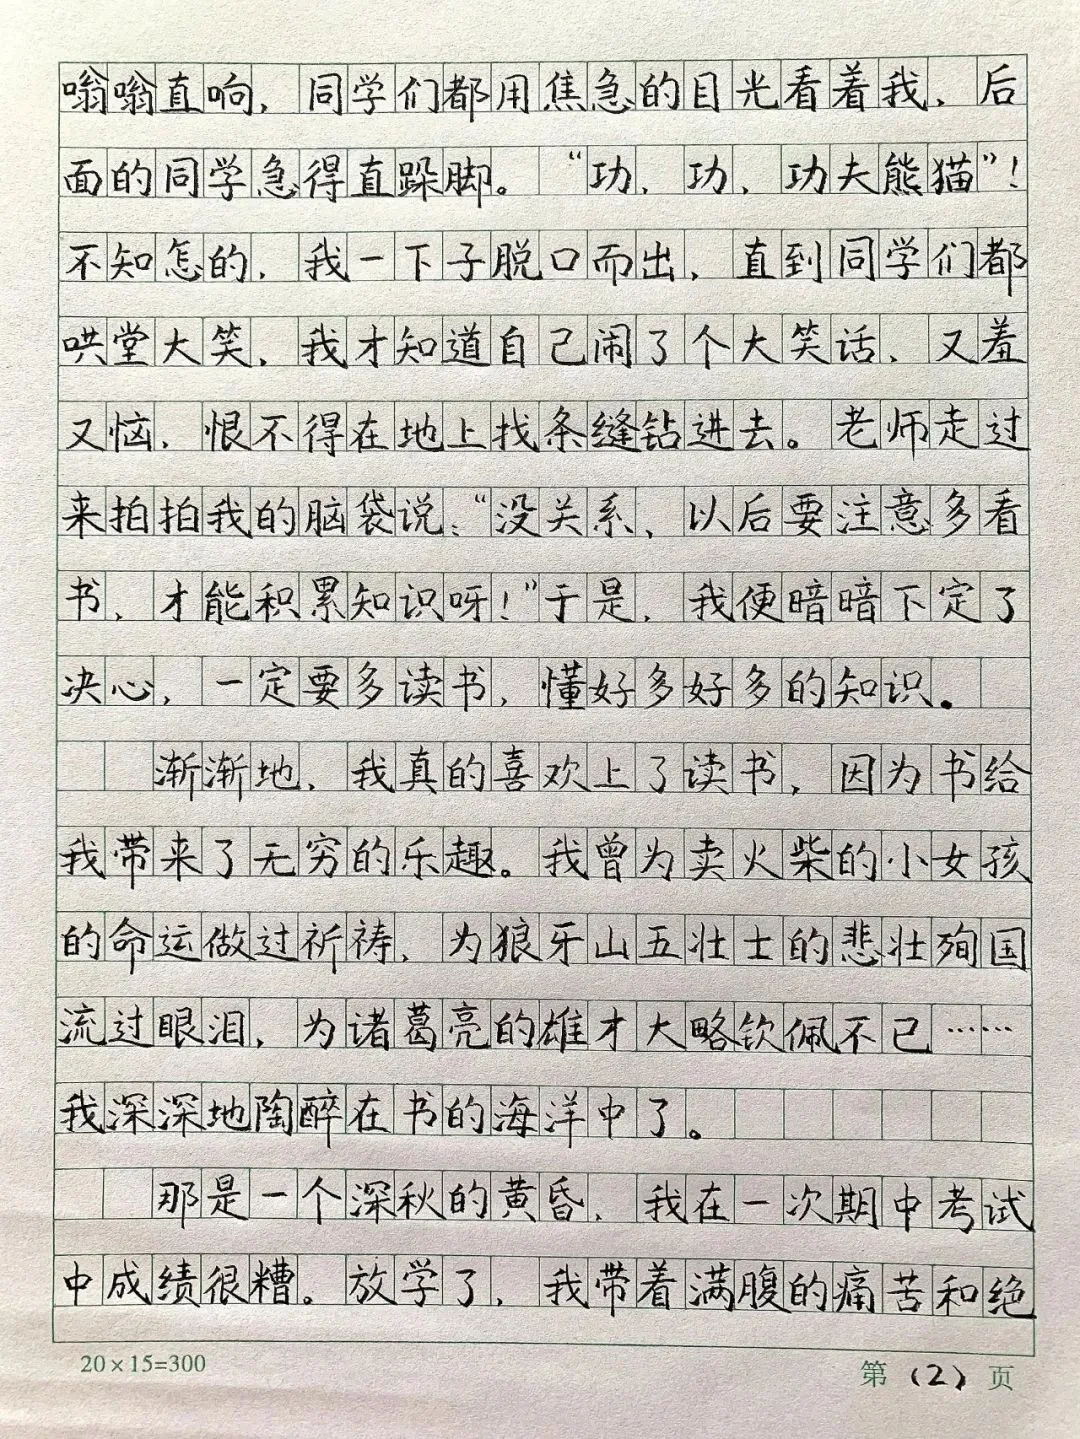 嗡嗡直响，同学们都用焦急的目光看着我，后
面的同学急得直跺脚。“功，功，功夫熊猫”！
不知怎的，我一下子脱口而出，直到同学们都
哄堂大笑，我才知道自己闹了个大笑话，又羞
又恼，恨不得在地上找条缝钻进去。老师走过
来拍拍我的脑袋说：“没关系，以后要注意多看
书，才能积累知识呀！”于是，我便暗暗下定了
决心，一定要多读书，懂好多好多的知识。
渐渐地，我真的喜欢上了读书，因为书给
我带来了无穷的乐趣。我曾为卖火柴的小女孩
的命运做过祈祷，为狼牙山五壮士的悲壮殉国
流过眼泪，为诸葛亮的雄才大略钦佩不已……
我深深地陶醉在书的海洋中了。
那是一个深秋的黄昏，我在一次期中考试
中成绩很糟。放学了，我带着满腹的痛苦和绝
20×15=300 第（2）页